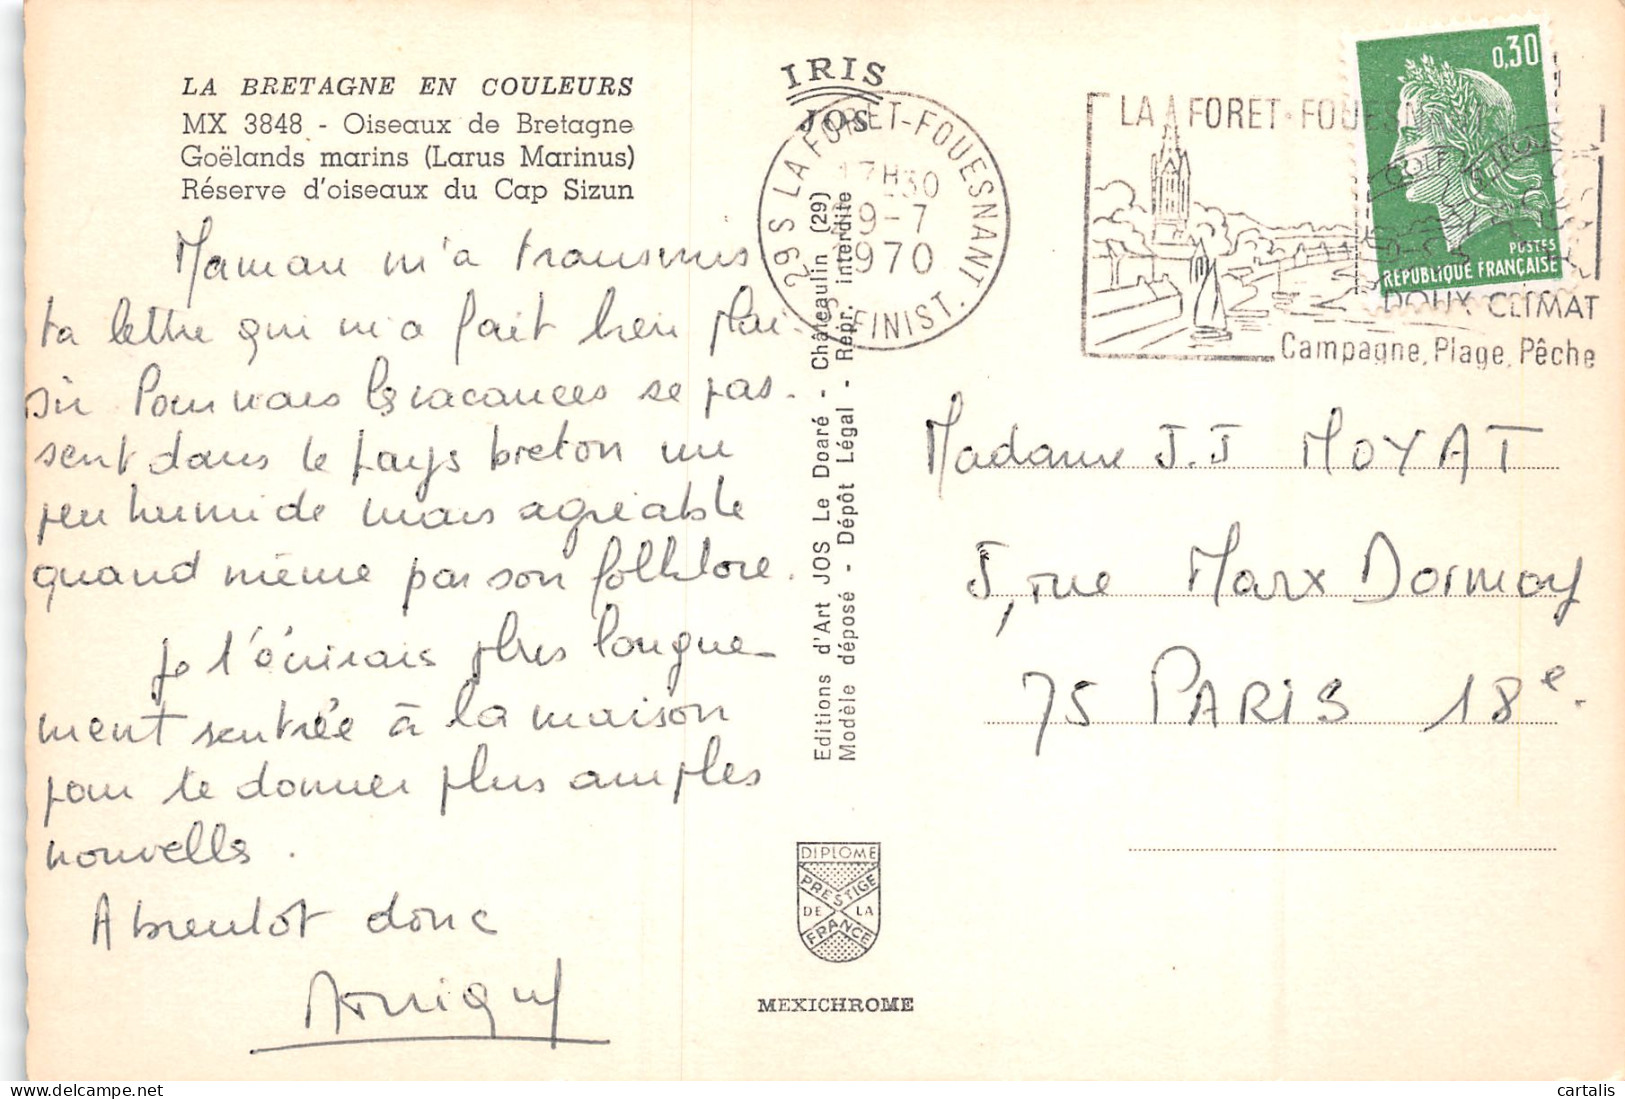 LA BRETAGNE EN COULEURS
MX 3848 - Oiseaux de Bretagne
Goëlands marins (Larus Marinus)
Réserve d'oiseaux du Cap Sizun
Maman m'a transmis
ta lettre qui m'a fait bien plai
sir Pour nous les vacances se pas-
sent dans le pays breton un
peu humide mais agréable
quand même par son folklore.
Je t'écrirais plus longue-
ment rentrée à la maison
pour te donner plus amples
nouvelles.
A bientot donc
IRIS
JOS
29S LA FORET-FOUESNANT. FINIST.
17H30
9-7
1970
Editions d'Art JOS Le Doaré - Châteaulin (29)
Modèle déposé - Dépôt Légal - Repr. interdite
DIPLOME
PRESTIGE
DE LA
FRANCE
MEXICHROME
LA FORET-FOUESNANT
DOUX CLIMAT
Campagne, Plage, Pêche
0,30
POSTES
REPUBLIQUE FRANÇAISE
Madame J.J MOYAT
5, rue Marx Dormoy
75 PARIS 18e.
cartalis